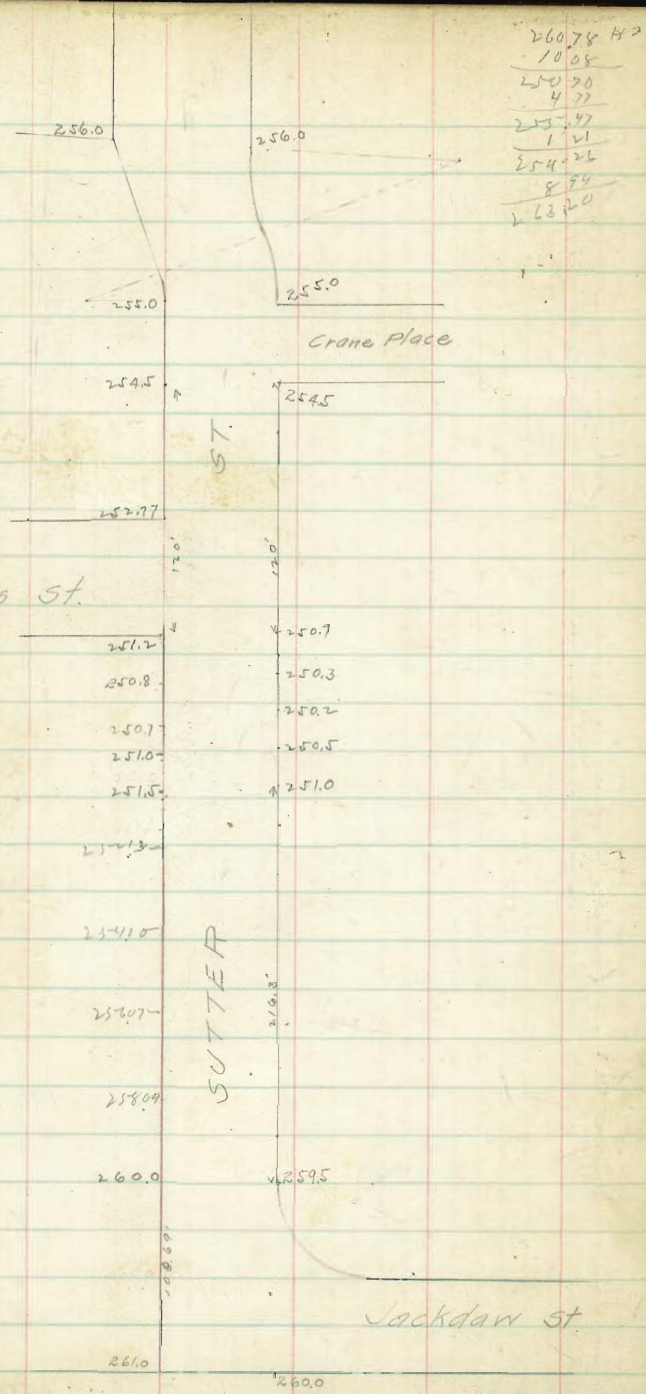 260.78
10 08
250 70
4 77
255.47
1 21
254.26
8 94
263.20
256.0
256.0
255.0
255.0
Crane Place
254.5
254.5
ST.
252.77
120'
120'
s St.
250.7
251.2
250.3
250.8
250.2
250.7
250.5
251.0
251.0
251.5
254.0
SUTTER
216.3'
256.07
258.09
260.0
259.5
Jackdaw St.
261.0
260.0